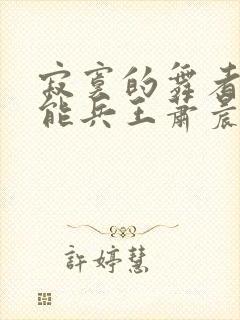 寂寞的舞者
能兵王肅晨
許婷慧